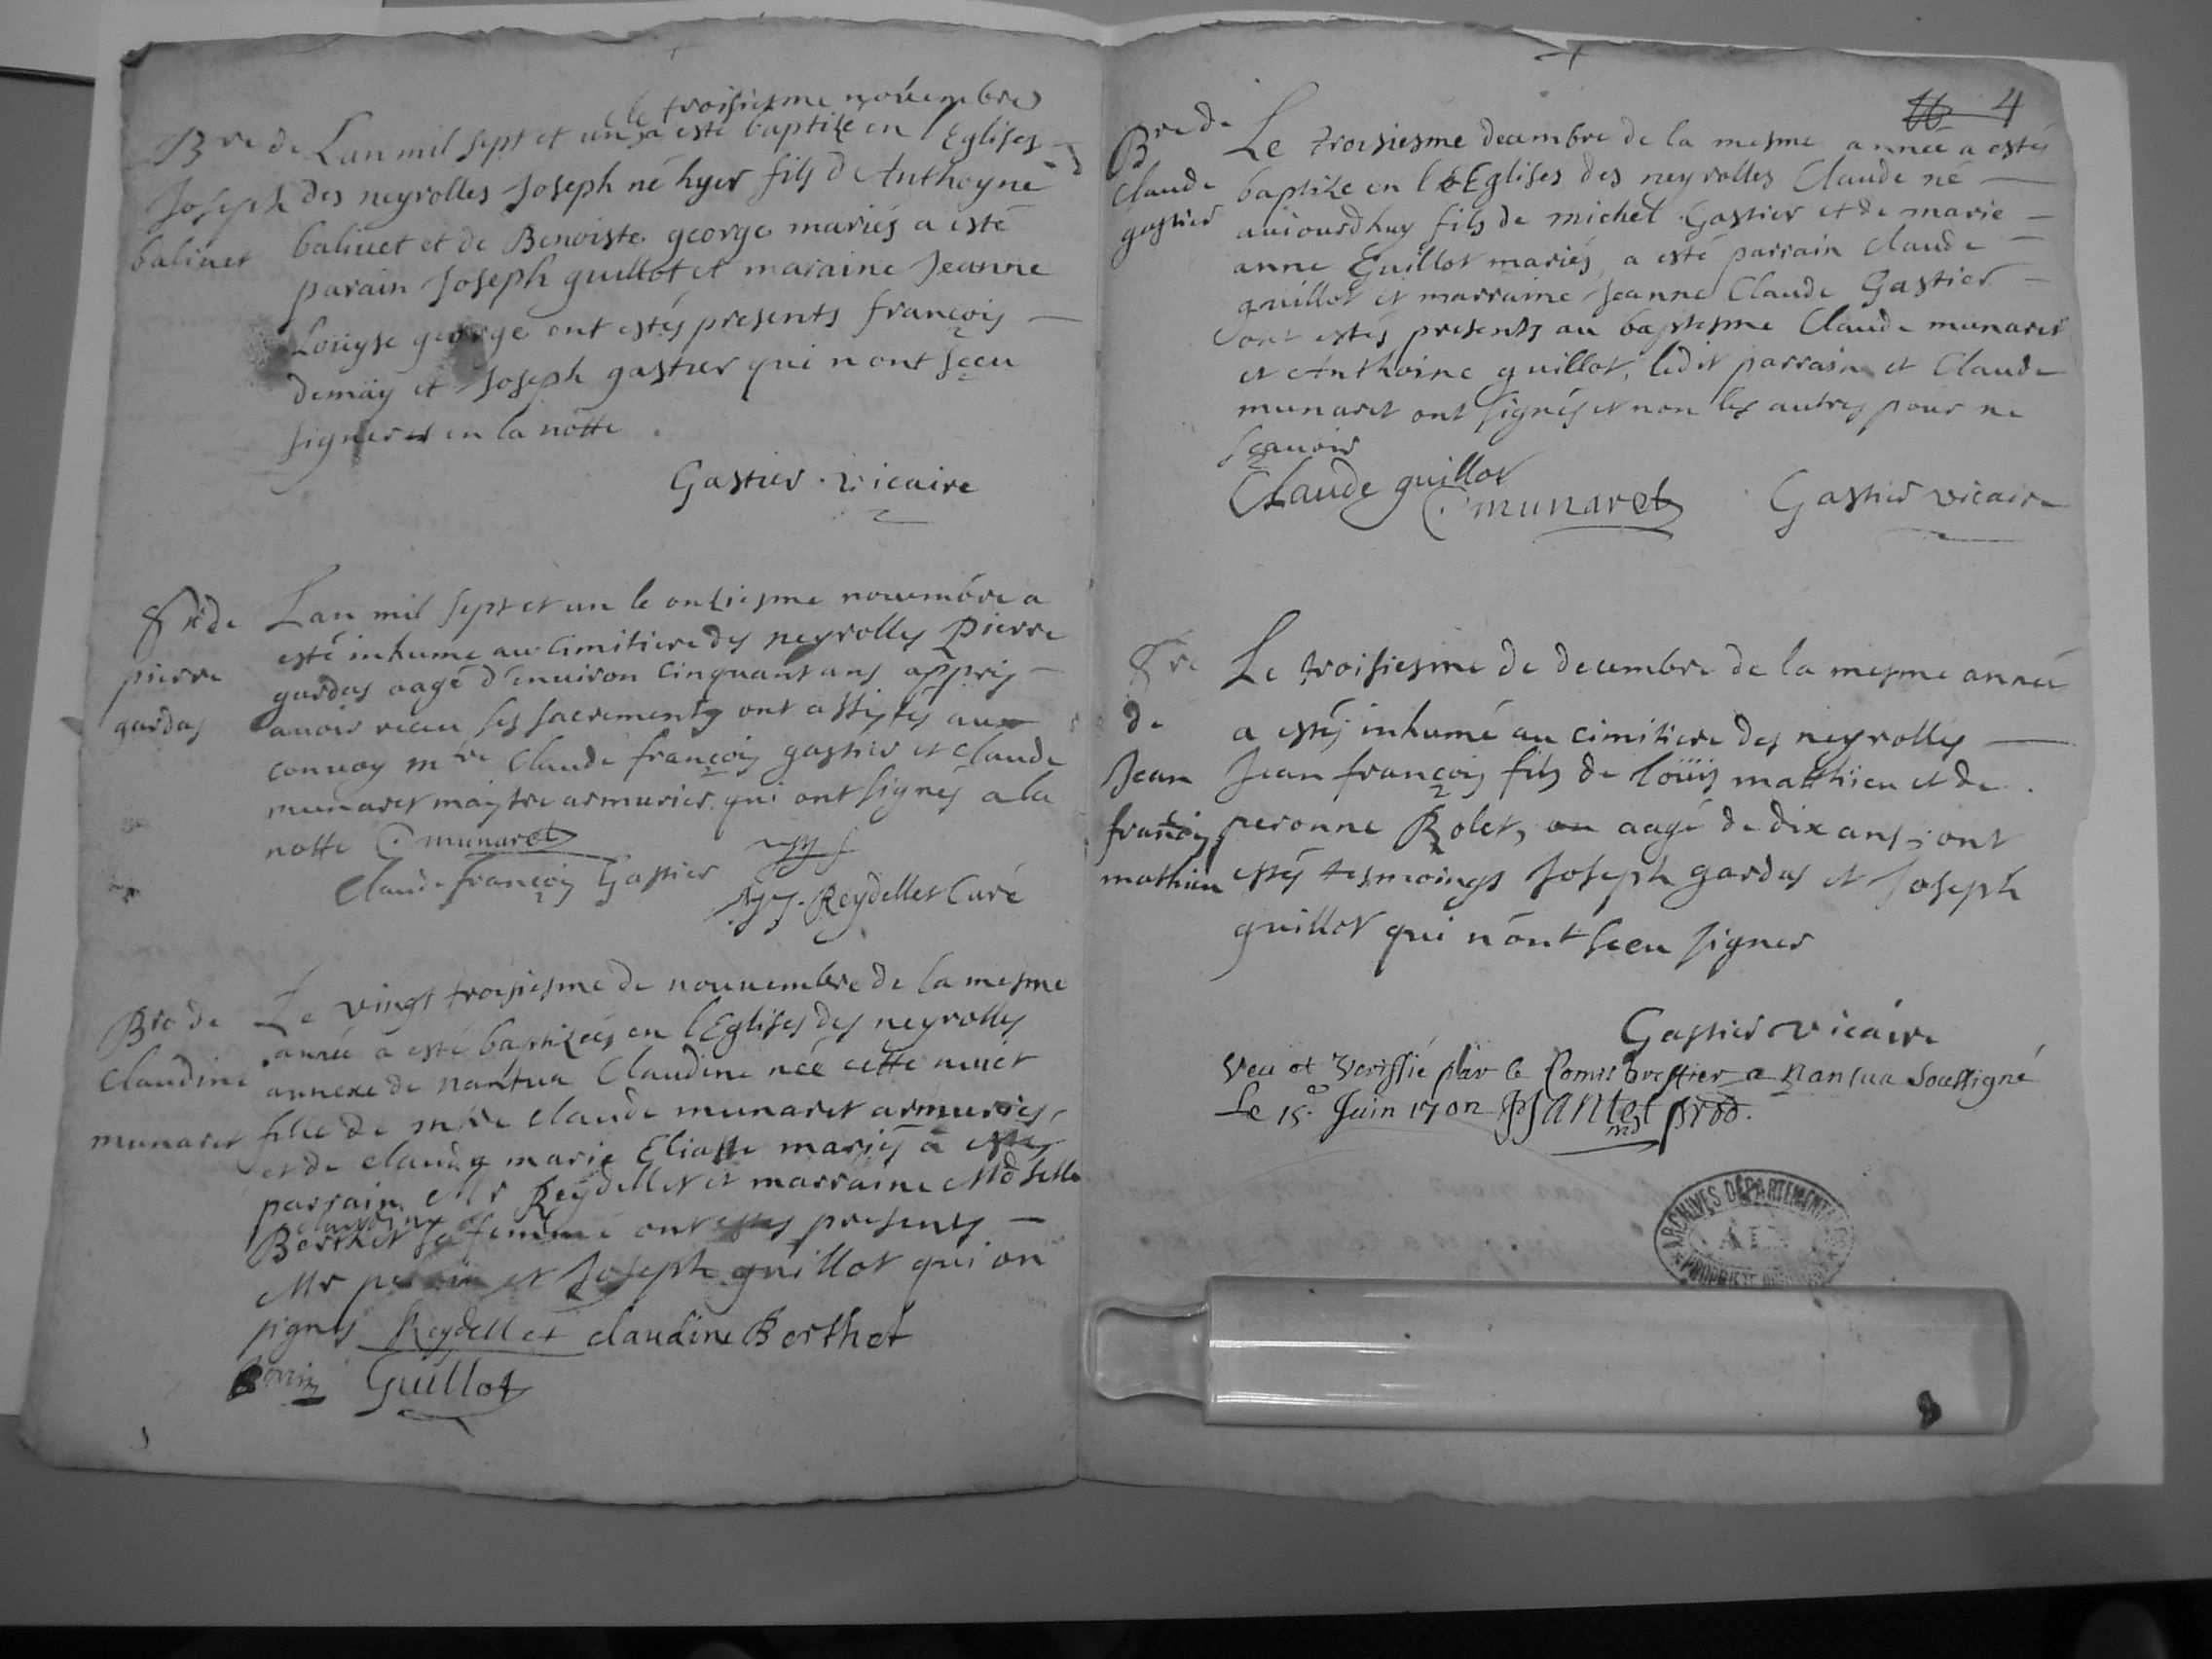 le troisiesme nouembre
Bre de Lan mil sept et un a esté baptizé en l Eglises
Joseph des neyrolles Joseph né hyer fils d Anthoyne
baliuet baliuet et de Benoiste george mariés a esté
parain Joseph guillot et maraine Jeanne
Louyse george ont estés presents françois
demay et Joseph gastier qui n ont sceu
signer en la notte
Gastier vicaire
Sre de Lan mil sept et un le onziesme nouembre a
esté inhume au cimitiere des neyrolles Pierre
pierre gardas aagé d'enuiron cinquant ans appres
gardas auoir receu ses sacrements ont assistés au
conuoy mtre Claude françois gastier et Claude
munaret maystre armurier qui ont signés a la
notte C. munaret
Claude françois Gastier
Reydellet Curé
Bre de Le vingt troisiesme de nouuembre de la mesme
année a esté baptizées en l Eglises des neyrolles
Claudine annexe de nantua Claudine née cette nuict
munaret fille de mtre Claude munaret armurier
et de claudine marie Eliasse mariés a estés
parrain Mr Reydellet et marraine Mdselle
claudine
Berthet sa femme ont estés presents
Mr perrin et Joseph guillot qui on
signés Reydellet claudine Berthet
perrin Guillot
4
Bre de Le troisiesme decembre de la mesme année a estés
Claude baptize en l Eglises des neyrolles Claude né
gastier auiourdhuy fils de michel Gastier et de marie
anne Guillot mariés a esté parrain Claude
guillot et marraine Jeanne Claude Gastier
ont estés presents au baptesme Claude munaret
et Anthoine guillot, ledit parrain et Claude
munaret ont signés et non les autres pour ne
sçauoir
Claude guillot
C. munaret Gastier vicaire
Sre Le troisiesme de decembre de la mesme année
de a estés inhumé au cimitiere des neyrolles
Jean Jean françois fils de loüis matthieu et de
françois peronne Rolet, aagé de dix ans, ont
mathieu estés tesmoings Joseph gardas et Joseph
guillot qui n ont sceu signer
Gastier vicaire
Veu et veriffié par le Commis greffier a Nantua Soussigné
Le 15e Juin 1702
ARCHIVES DÉPARTEMENTALES
AIN